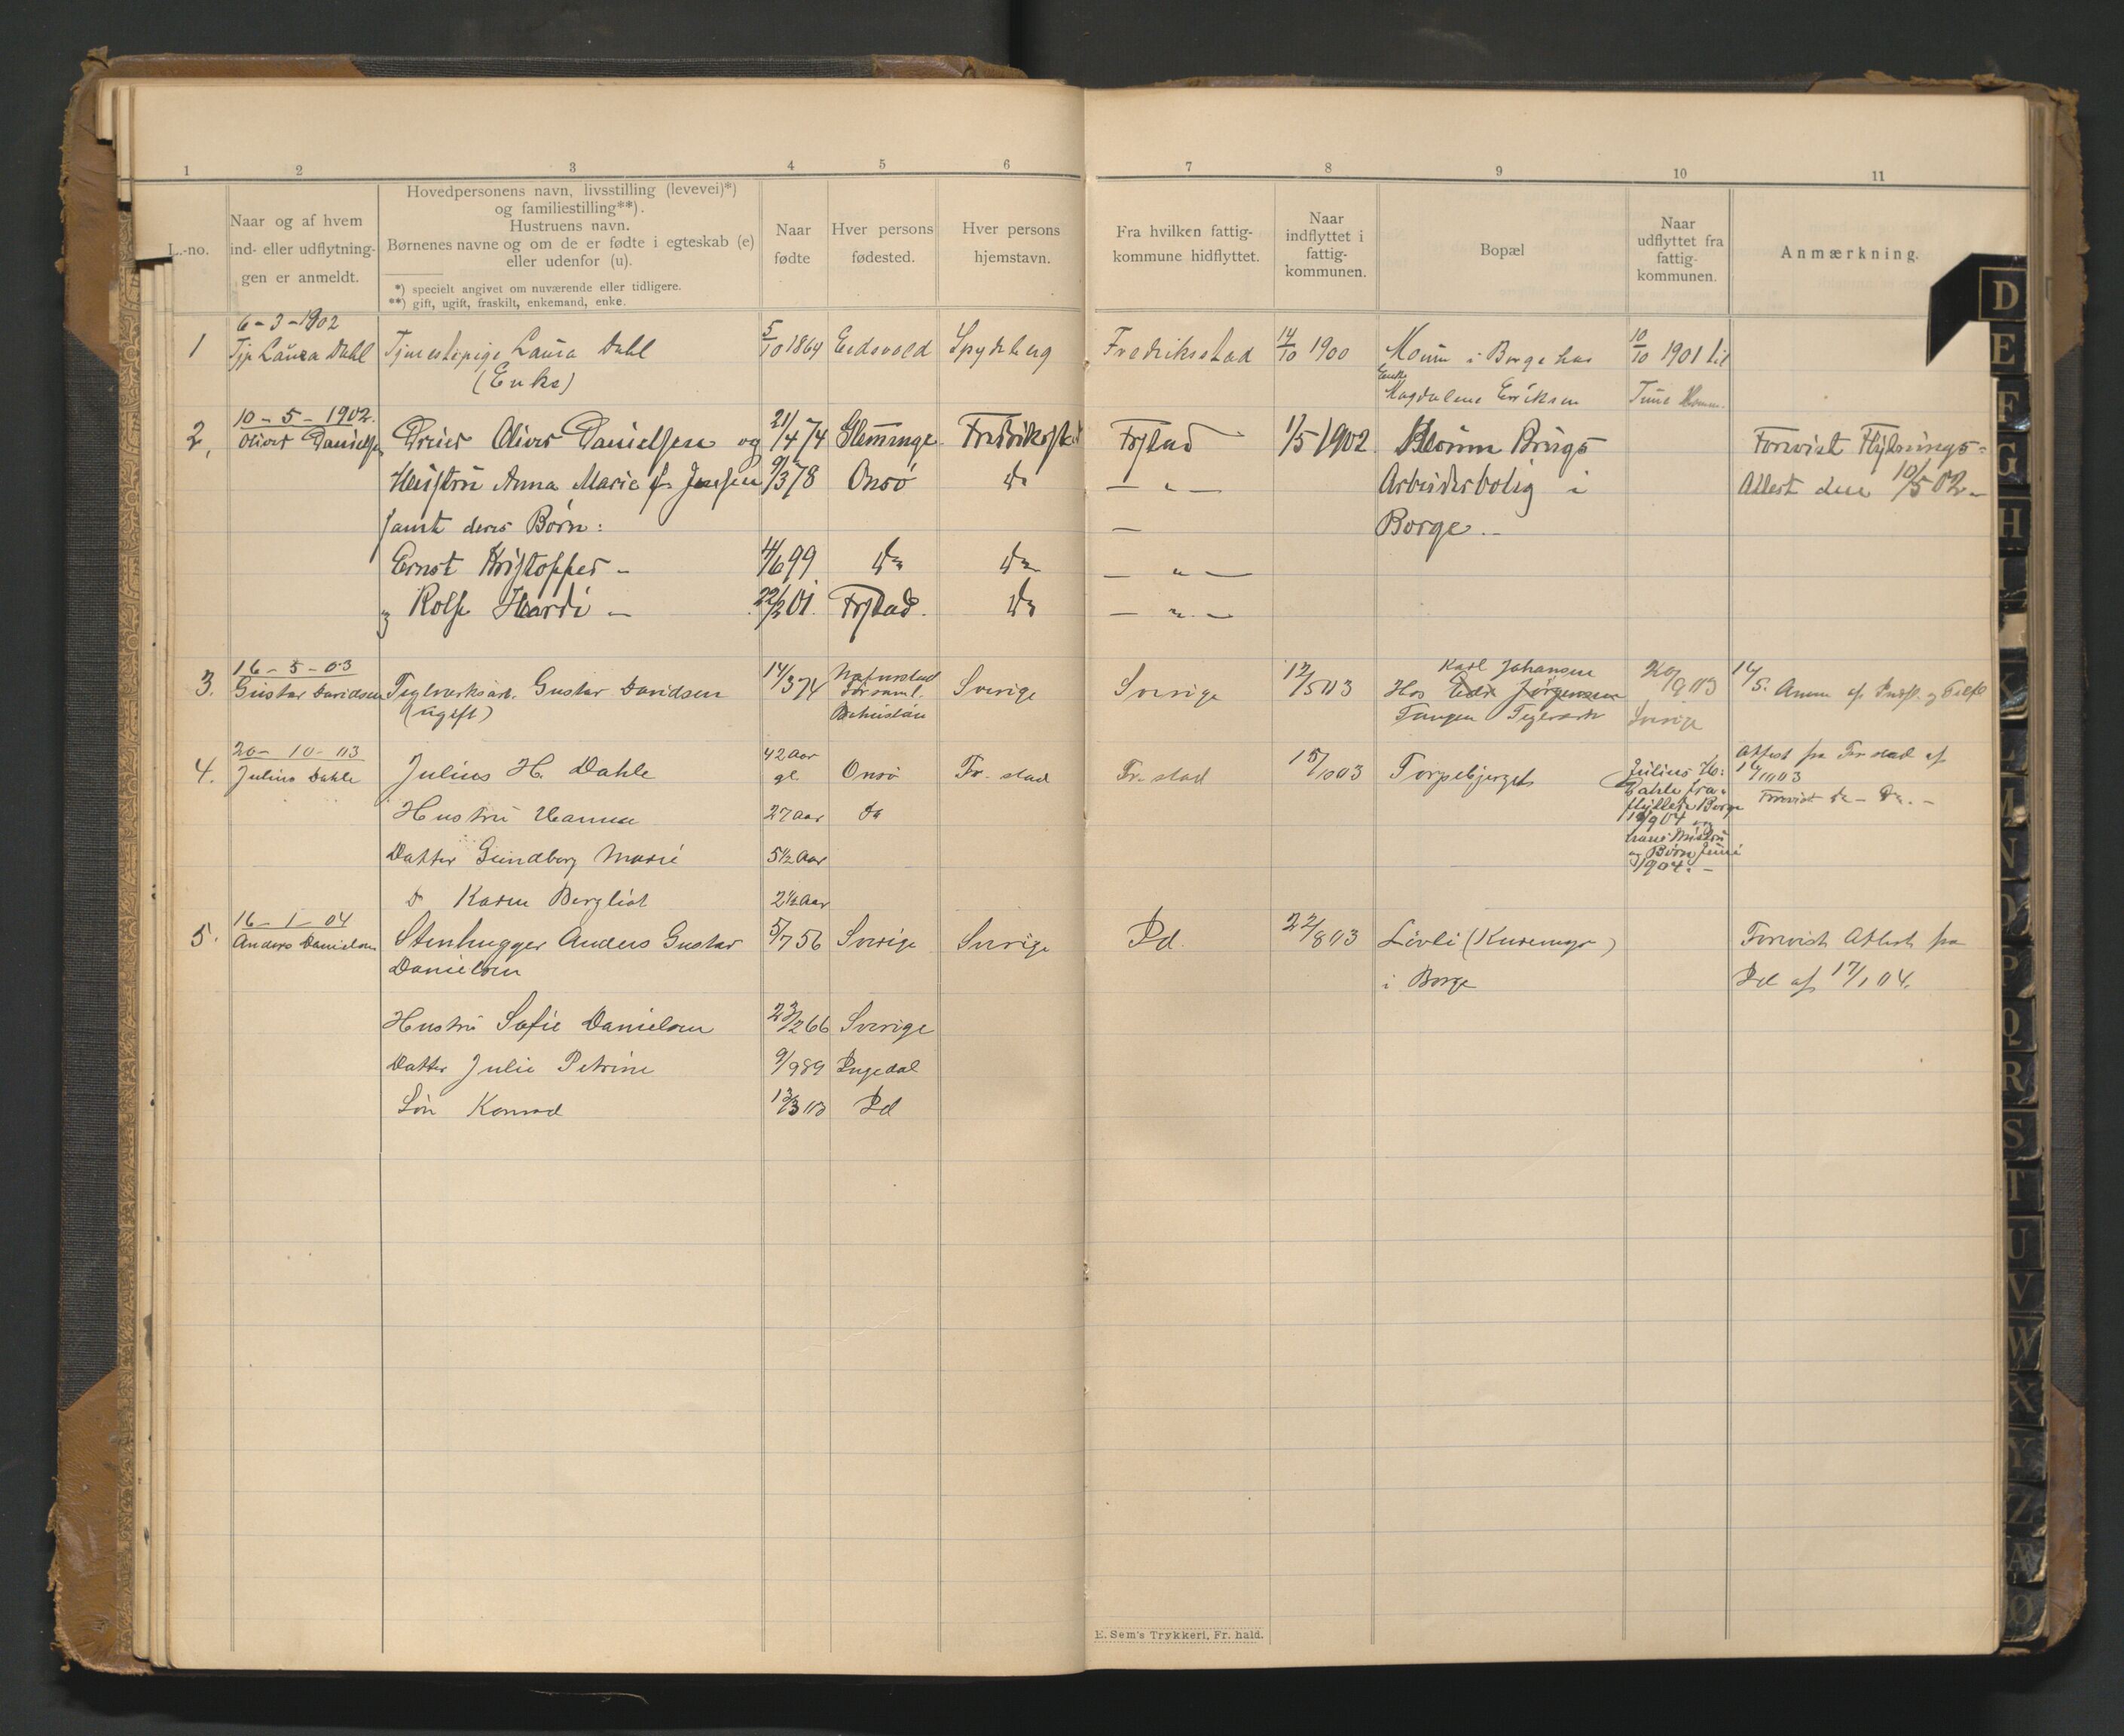 1 2 3 4 5 6 7 8 9 10 11
L.-no.
Naar og af hvem
ind- eller udflytnin-
gen er anmeldt.
Hovedpersonens navn, livsstilling (levevei)*)
og familiestilling**).
Hustruens navn.
Børnenes navne og om de er fødte i egteskab (e)
eller udenfor (u).
*) specielt angivet om nuværende eller tidligere.
**) gift, ugift, fraskilt, enkemand, enke.
Naar
fødte
Hver persons
fødested.
Hver persons
hjemstavn.
Fra hvilken fattig-
kommune hidflyttet.
Naar
indflyttet i
fattig-
kommunen.
Bopæl
Naar
udflyttet fra
fattig-
kommunen.
Anmærkning.
6-3-1902
1 Tjp Laura Dahl Tjenestepige Laura Dahl 5/10 1864 Eidsvold Spydeberg Fredriksstad 14/10 1900 Moum i Borge hos 10/10 1901 til
(Enke) Enke Magdalene Eriksen Tune
10-5-1902.
2, Oliver Danielsen Oliver Danielsen og 21/4 74 Glemminge Fredriksstad Frstad 1/5 1902. Moum Brugs Forevist Flytnings-
Hustru Anna Marie f. Jensen 9/3 78 Onsö do — " — Arbeiderbolig i Attest den 10/5 02 -
samt deres Børn: — Borge. -
Ernst Kristoffer - 4/6 99 do do — " —
og Rolf Hardi — 22/2 01. Frstad. do — " —
16-5-03
3. Gustav Davidsen Teglverksarb. Gustav Davidsen 14/3 74 Naturstad Sverige Sverige 12/5 03 Karl Johansen 20/9 03 16/5.
(ugift) Forsaml. Hos Edv Jörgensen Sverige
Bohuslän Tangen Teglverk
20-10-03
4. Julius Dahle Julius H. Dahle 42 Aar gl. Onsö Fr.stad Fr.stad 15/10 03 Torpebjerget Julius H. Attest fra Fr stad af
Dahle fra- 16/10 03
flyttet Borge Forevist do - do. -
Hustru Hanna 27 Aar do
/9 04 og
hans Hustru
og Børn Juni
1904. -
Datter Gundborg Marie 5½ Aar
do Karen Bergliot 2½ Aar
16-1-04
5. Anders Danielsen Stenhugger Anders Gustav 5/7 56 Sverige Sverige Id. 22/8 03 Lövli ( ) Forevist Attest fra
Danielsen i Borge Id af 17/1 04.
Hustru Sofie Danielsen 23/2 66 Sverige
Datter Julie Petrine 9/9 89 Ingedal
Sön Konrad 13/3 03 Id
E. Sem's Trykkeri, Fr. hald.
D
E
F
G
H
K
L
M
N
O
P
Q
R
S
T
U
V
W
X
Y
Z
Æ
Ø